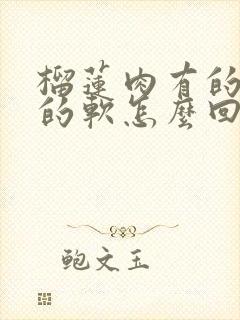 榴蓮肉有的
的軟怎麼回
鲍文玉